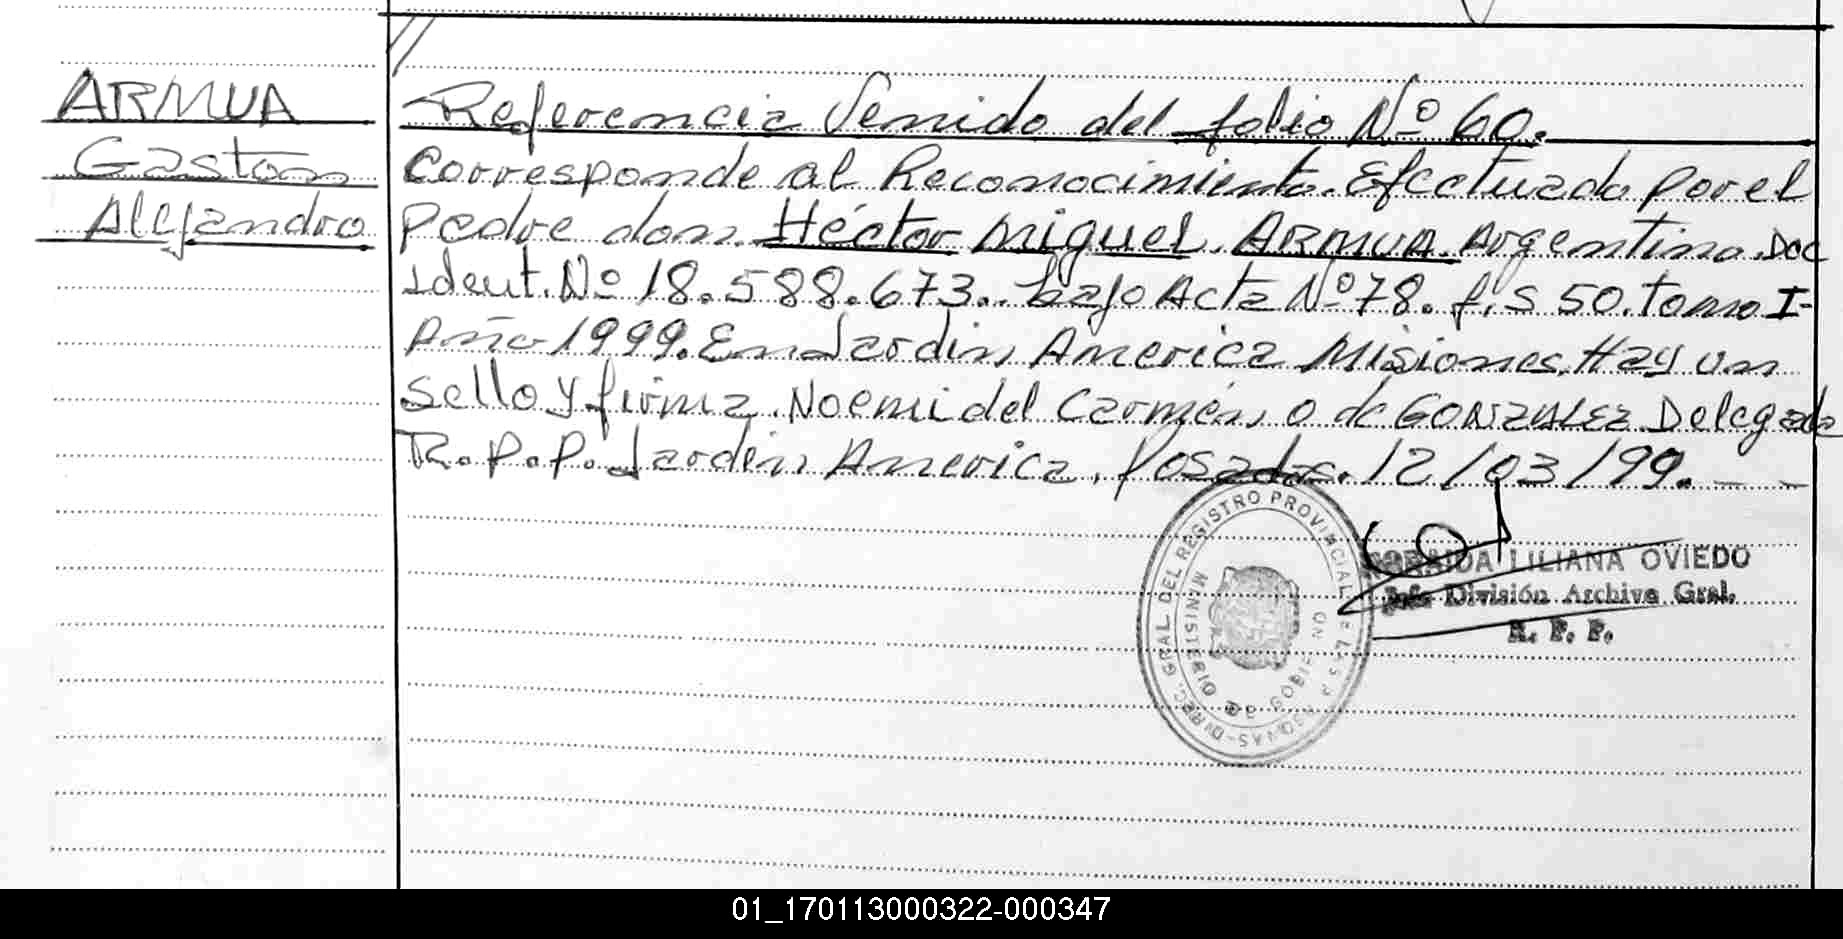 ARMUA
Gaston
Alejandro
Referencia Venido del folio Nº 60.
Corresponde al Reconocimiento. Efectuado por el
padre don. Héctor Miguel. ARMUA. Argentino. Doc
Ident. Nº 18.588.673. bajo Acta Nº 78. f.S 50. tomo I-
Año 1999. En Jardin America Misiones. Hay un
sello y firma. Noemi del Carmén, O de GONZALEZ Delegada
R.P.P. Jardin America. Posadas. 12/03/99. - -
DIREC. GRAL. DEL REGISTRO PROVINCIAL DE LAS PERSONAS
MINISTERIO DE GOBIERNO
LILIANA OVIEDO
Jefe División Archivo Gral.
R. P. P.
01_170113000322-000347